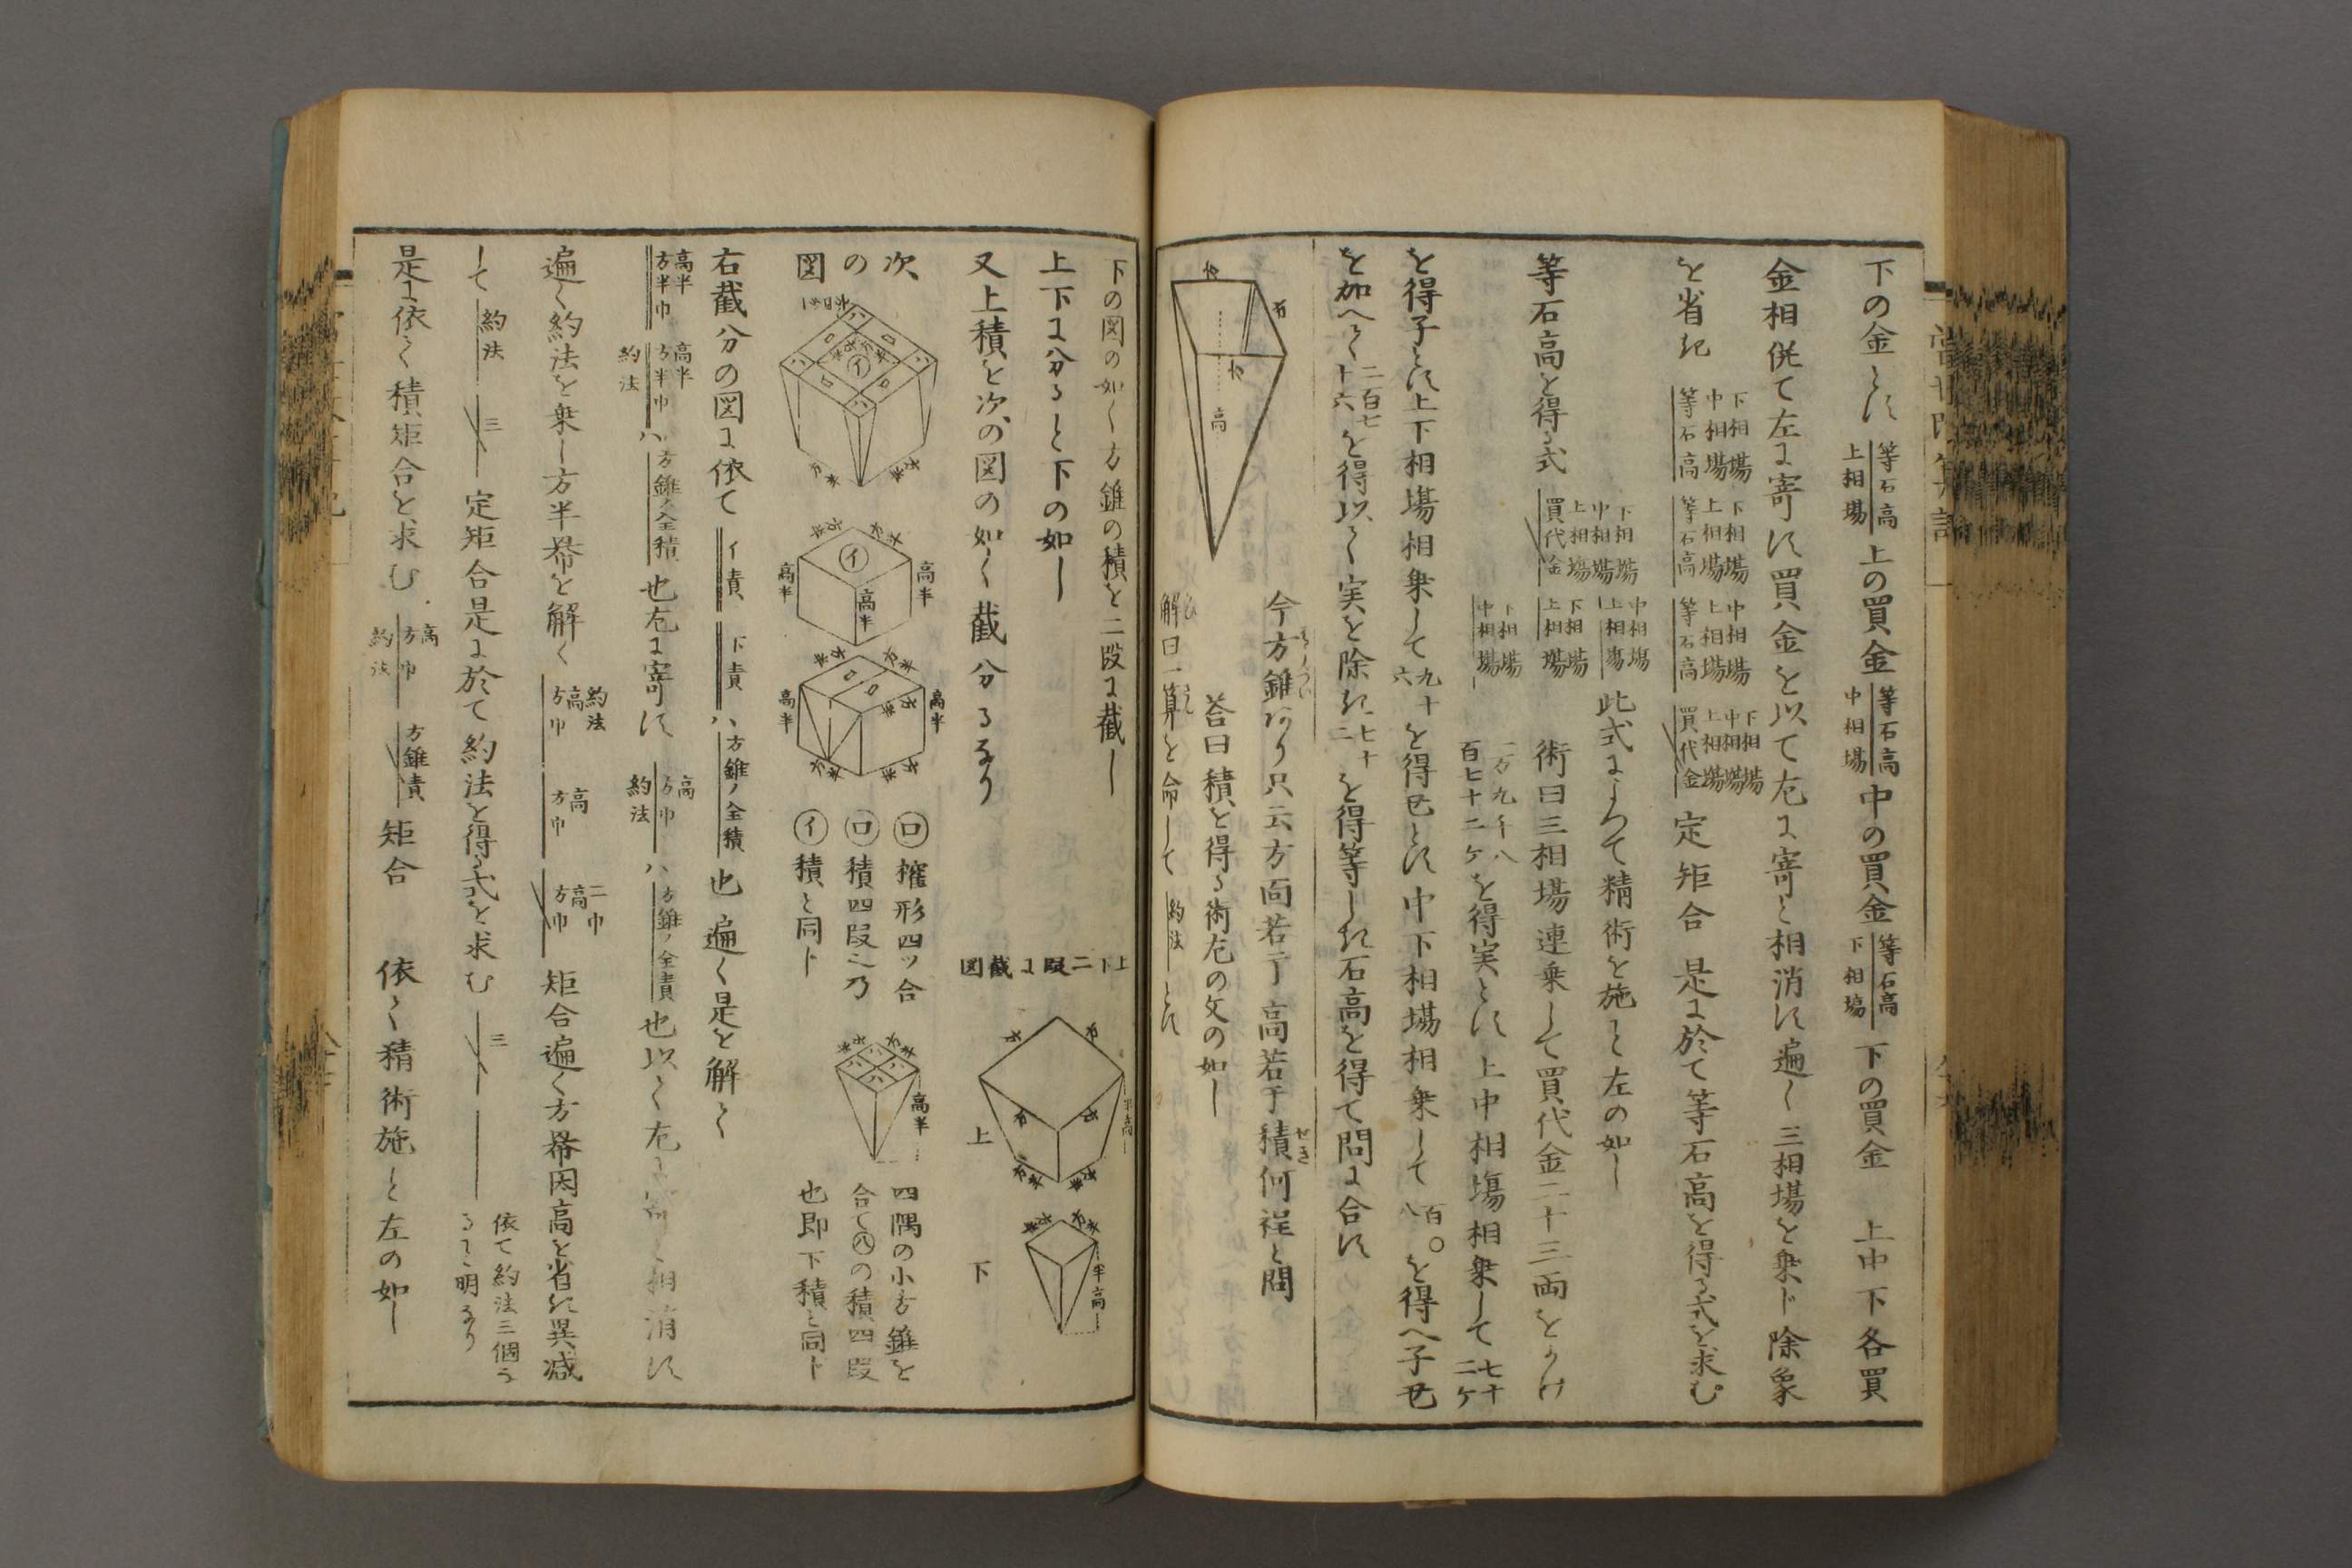 下の金とす 等石高 上相場 上の買金 等石高 中相場 中の買金 等石高 下相場 下の買金 上中下各買
金相併て左に寄す買金を以て左に寄と相消す遍し三相場を乗ド除象
を省き 下相場 中相場 等石高 下相場 上相場 等石高 中相場 上相場 等石高 下相場 中相場 上相場 買代金 定矩合 是に於て等石高を得る式を求む
等石高を得る式 下相場 中相場 上相場 買代金 中相場 上相場 下相場 上相場 下相場 中相場 此式によつて精術を施こと左の如し
術曰三相場連乗して買代金二十三両をかけ
一万九千八百七十二ケを得実とす 上中相場相乗して七十二ケ
を得子とす上下相場相乗して九十六を得丑とす中下相場相乗して百〇八を得へ子丑
を加へて二百七十六を得以て実を除き七十二を得等しき石高を得て問に合す
方
方
方
高
今方錐あり只云方面若干高若干積何程と問
答曰積を得る術左の文の如し
解曰一算を命して 約法 とす
下の図の如く方錐の積を二段に截し
上下に分ること下の如し
又上積を次の図の如く截分るなり
上下二段に截図
方
方
方
方
方半
方半
半高
上
方半
方半
半高
下
次の図
イ
方半
方半
高半
高半
高半
方半
方半
高半
高半
ロ
ロ
方半
方半
㋺ 擢形四ツ合
㋺ 積四段之乃
㋑ 積と同ド
方半
方半
高半
四隅の小方錐を
合て㋩の積四段
也即下積と同ド
右截分の図に依て イ責 下責 ハ 方錐ノ全積 也 遍く是を解く
高半 方半巾 高半 方半巾 約法 ハ 方錐ノ全積 也左に寄す 高 方巾 約法 ハ 方錐ノ全責 也以て左に寄と相消す
遍く約法を乗し方半冪を解く 約法 高 方巾 高 方巾 二巾 高 方巾 矩合遍く方冪因高を省き異減
して 約法 三 定矩合是に於て約法を得る式を求む 三 依て約法三個なること明なり
是に依て積矩合を求む 高 方巾 約法 方錐責 矩合 依て精術施こと左の如し